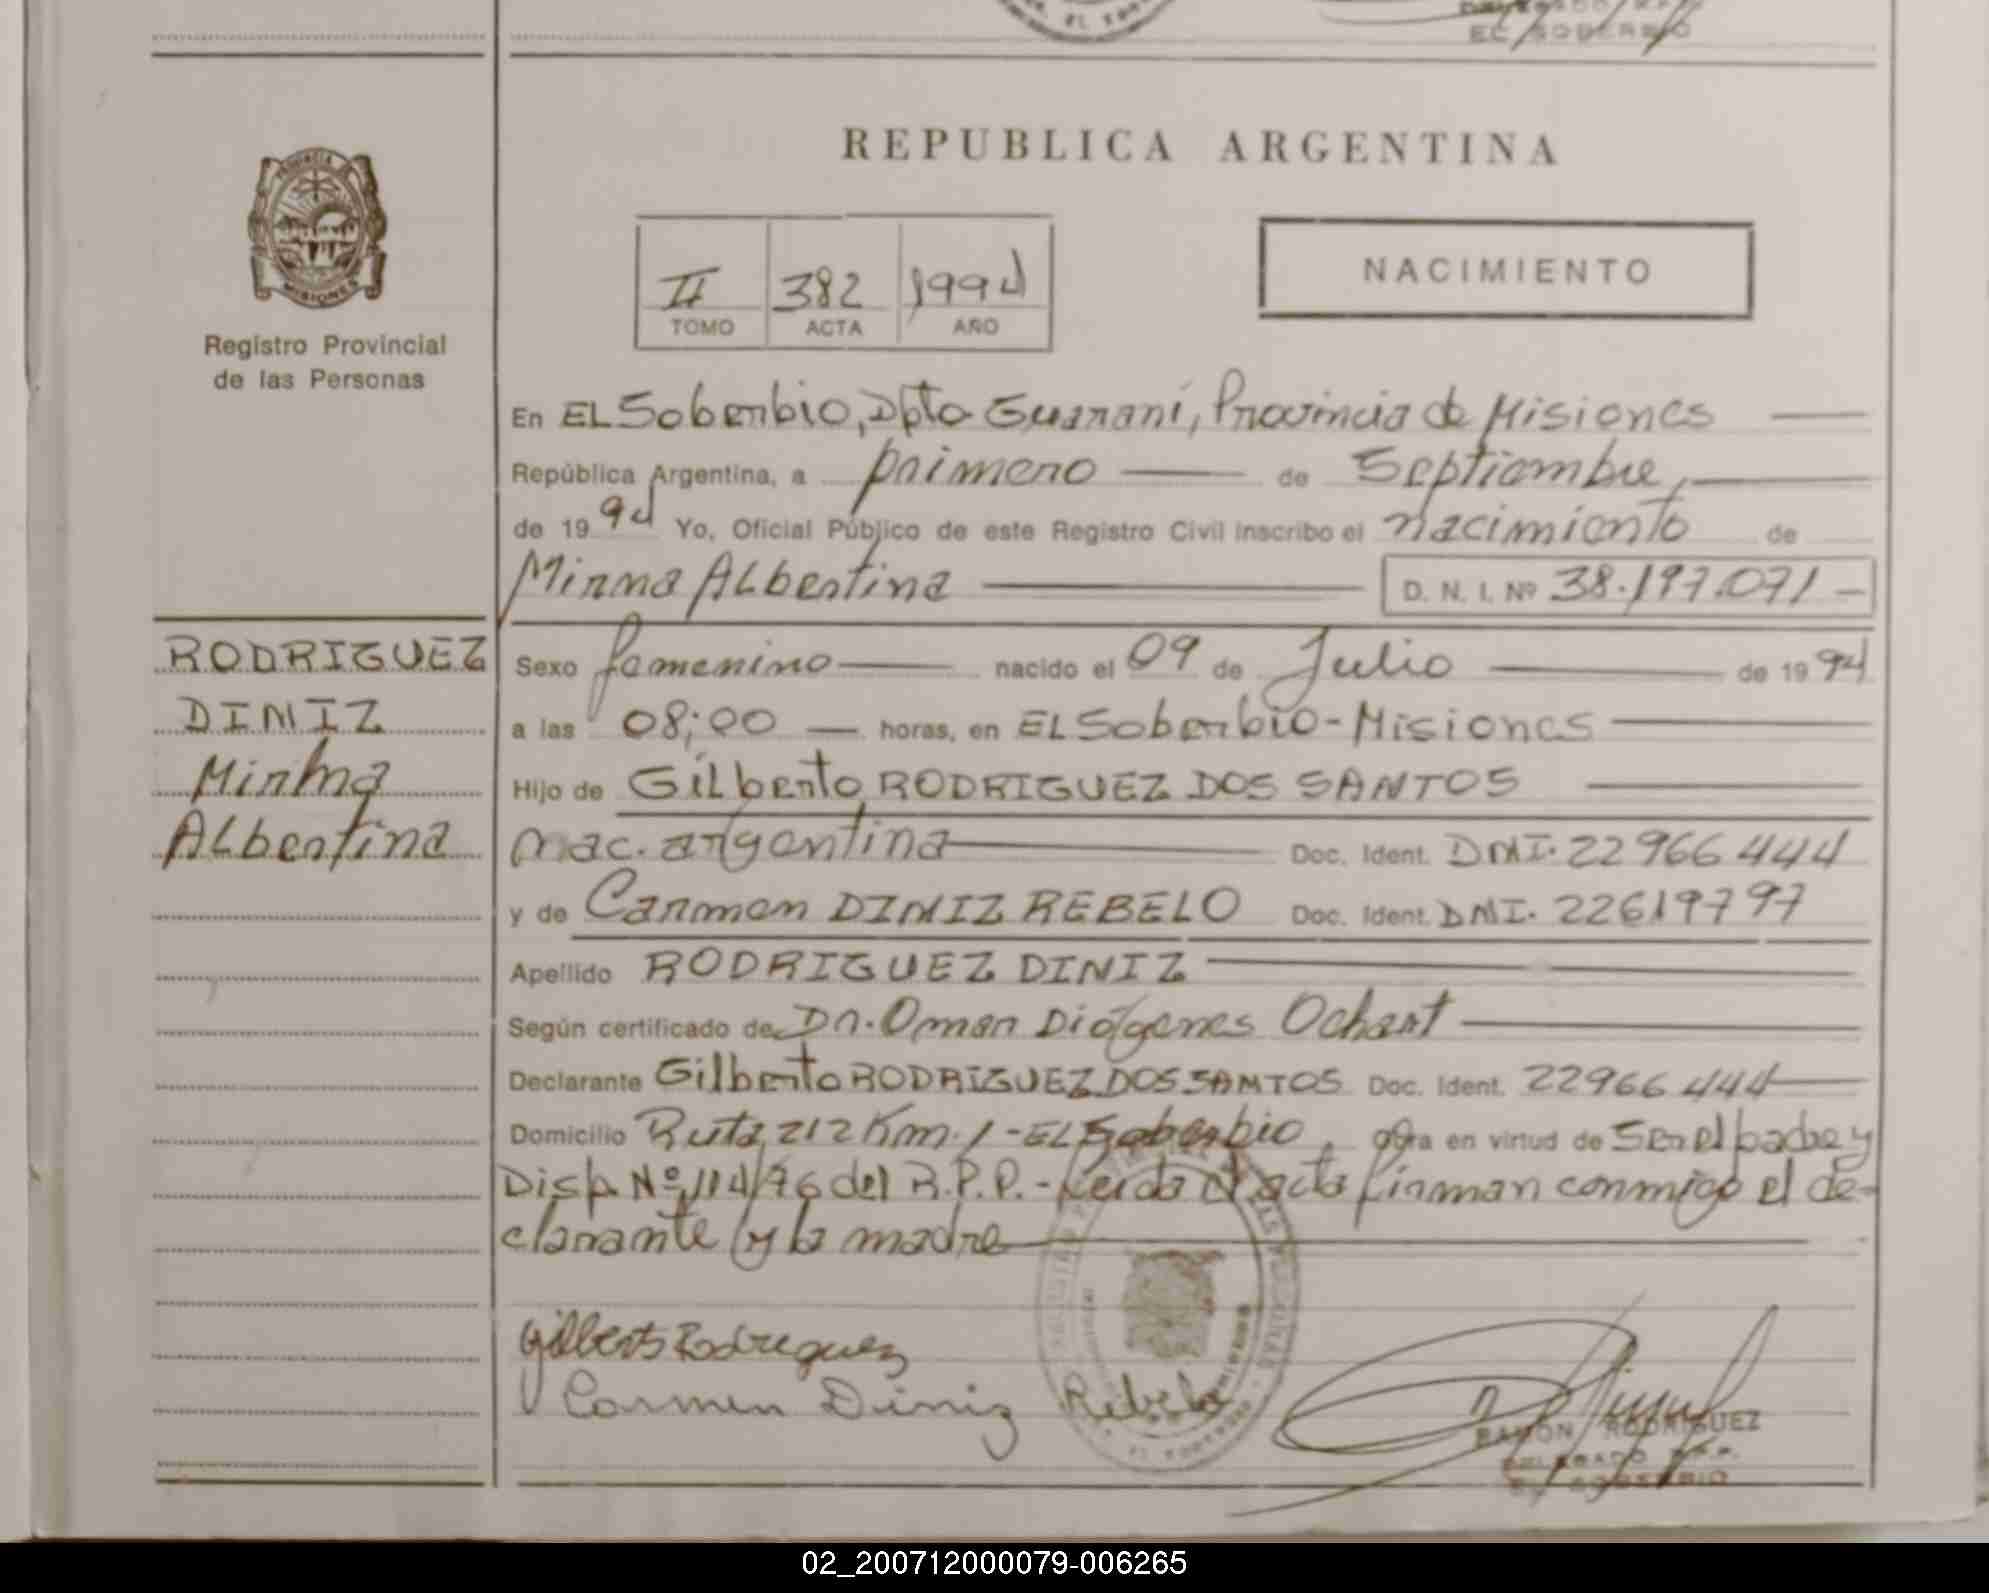 EL SOBERBIO
REPUBLICA ARGENTINA
PROVINCIA
MISIONES
Registro Provincial
de las Personas
II 382 1994
TOMO ACTA AÑO
NACIMIENTO
En EL Soberbio, Dpto Guaraní, Provincia de Misiones
República Argentina, a primero de Septiembre,
de 1994 Yo, Oficial Público de este Registro Civil Inscribo el nacimiento de
Mirma ALbertina D. N. I. Nº 38.197.071
RODRIGUEZ
DINIZ
Mirma
ALbertina
Sexo femenino nacido el 09 de Julio de 1994
a las 08:00 horas, en EL Soberbio - Misiones
Hijo de Gilberto RODRIGUEZ DOS SANTOS
nac. argentina Doc. Ident. DNI. 22966444
y de Carmen DINIZ REBELO Doc. Ident. DNI. 22619797
Apellido RODRIGUEZ DINIZ
Según certificado de Dr. Omar Diógenes Ochart
Declarante Gilberto RODRIGUEZ DOS SANTOS Doc. Ident. 22966444
Domicilio Ruta 212 Km. 1 - EL Soberbio, obra en virtud de Ser el padre y
Disp. Nº 114/76 del R.P.P. - Leida el acta firman conmigo el de-
clarante y la madre
Gilberto Rodreguez
Carmen Diniz Rebelo
RAMÓN RODRIGUEZ
DELEGADO R.P.P.
EL SOBERBIO
02_200712000079-006265